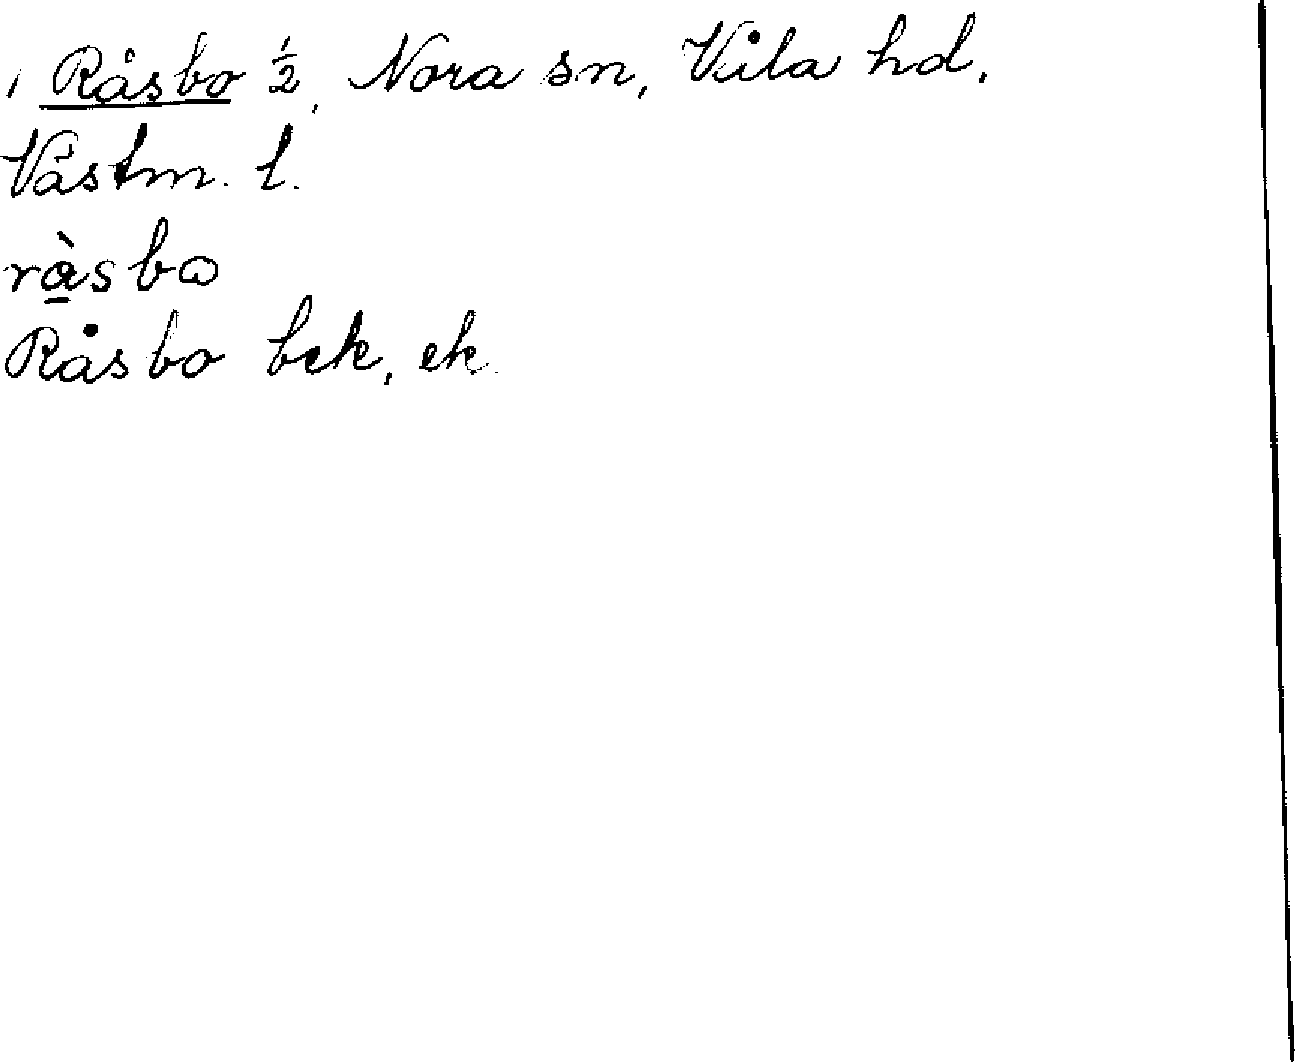 Råsbo ½, Nora sn, Våla hd,
Västm. l.
rà̱sbɷ
Råsbo bek, ek.